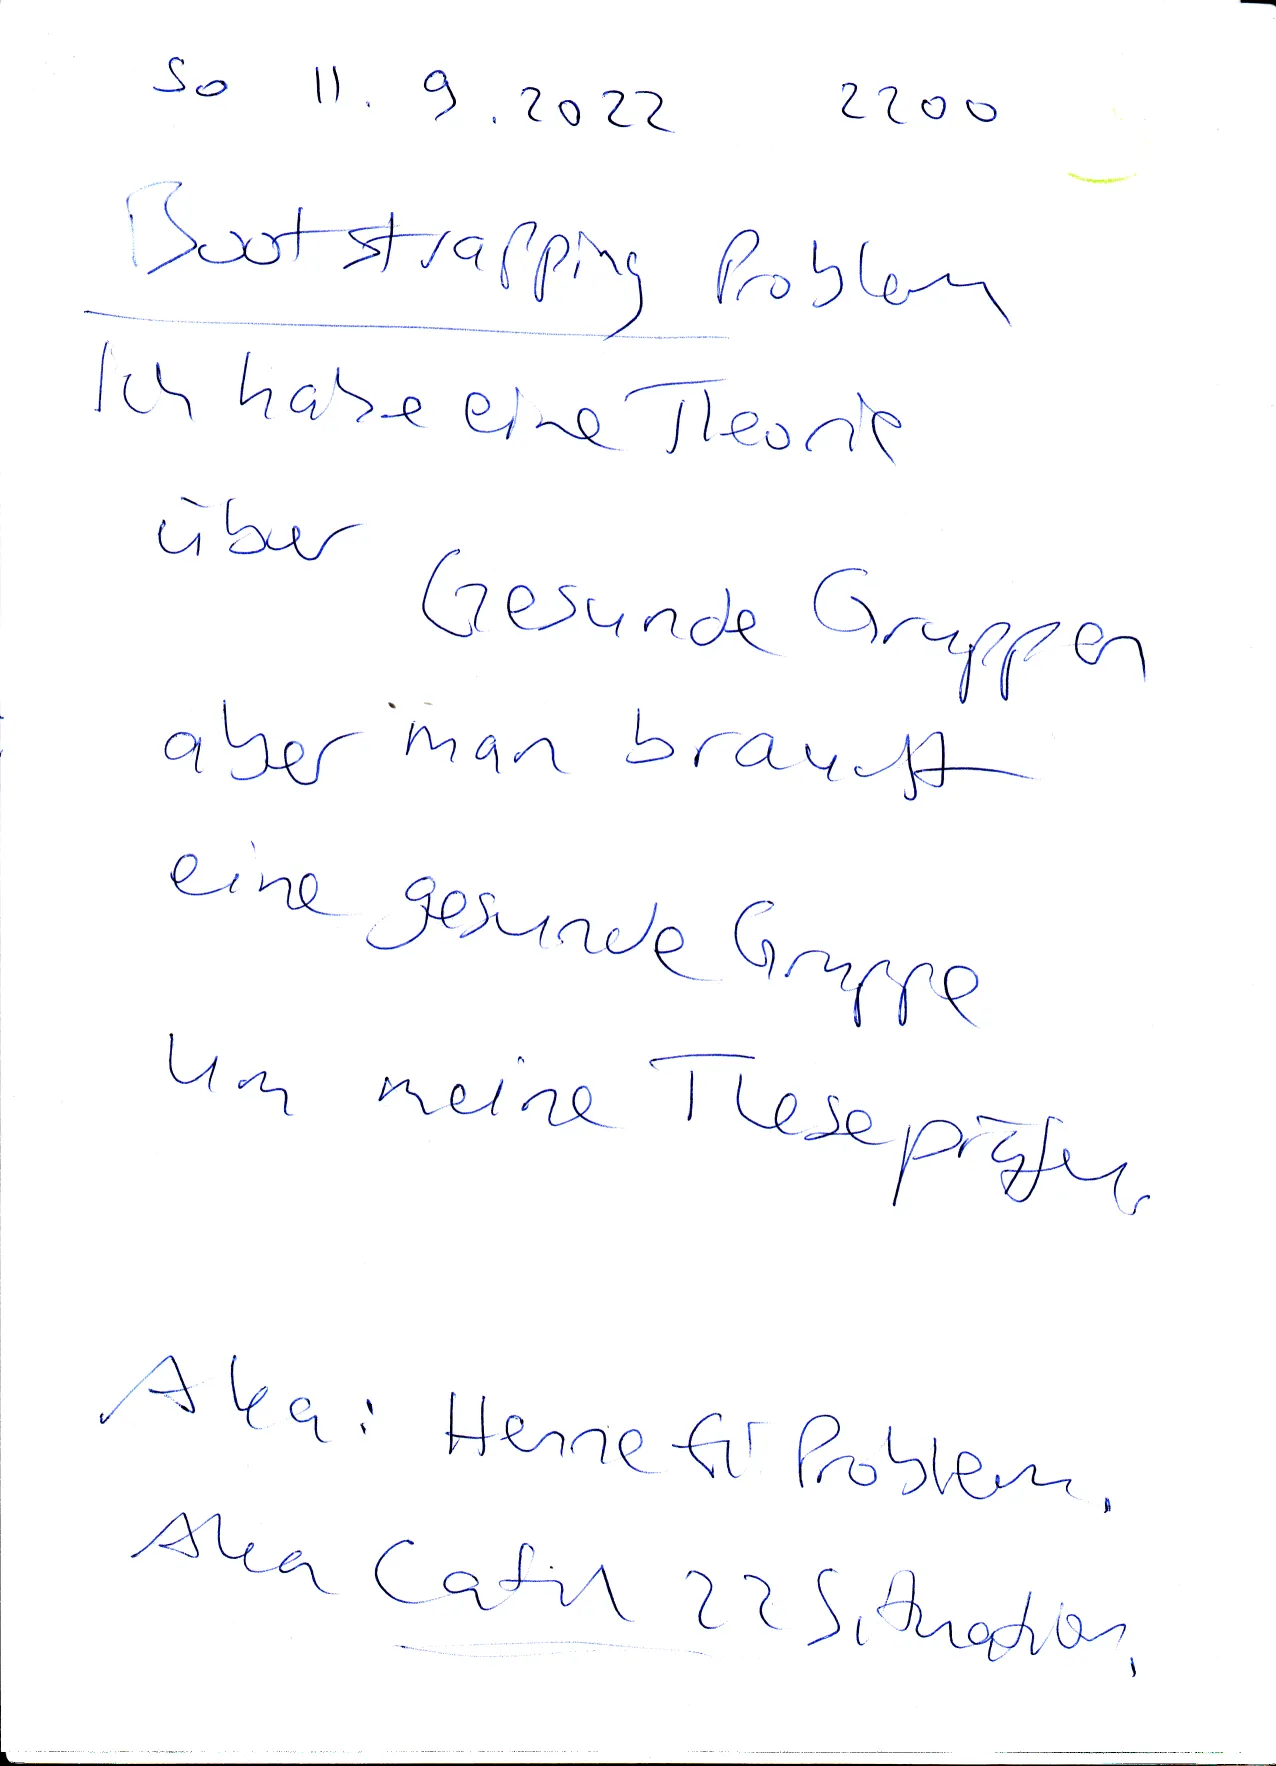 So 11. 9. 2022 2200
Bootstrapping Problem
Ich habe eine Theorie
über Gesunde Gruppen
aber man braucht
eine gesunde Gruppe
um meine These prüfen.
Aka: Henne Ei Problem.
Aka Catch 22 Situation.